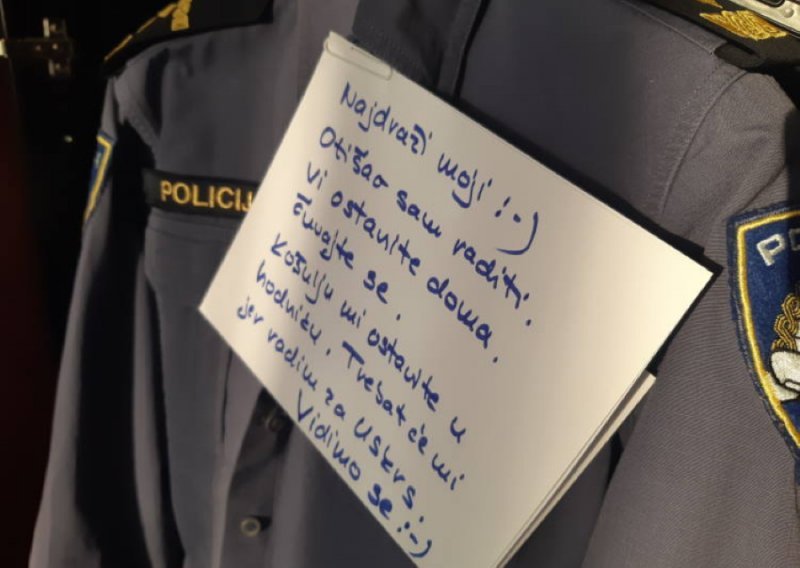 Najdraži moji :-)
Otišao sam raditi.
Vi ostanite doma.
Čuvajte se.
Košulju mi ostavite u
hodniku. Trebat će mi
jer radim za Uskrs.
Vidimo se :-)
POLICIJ
PO